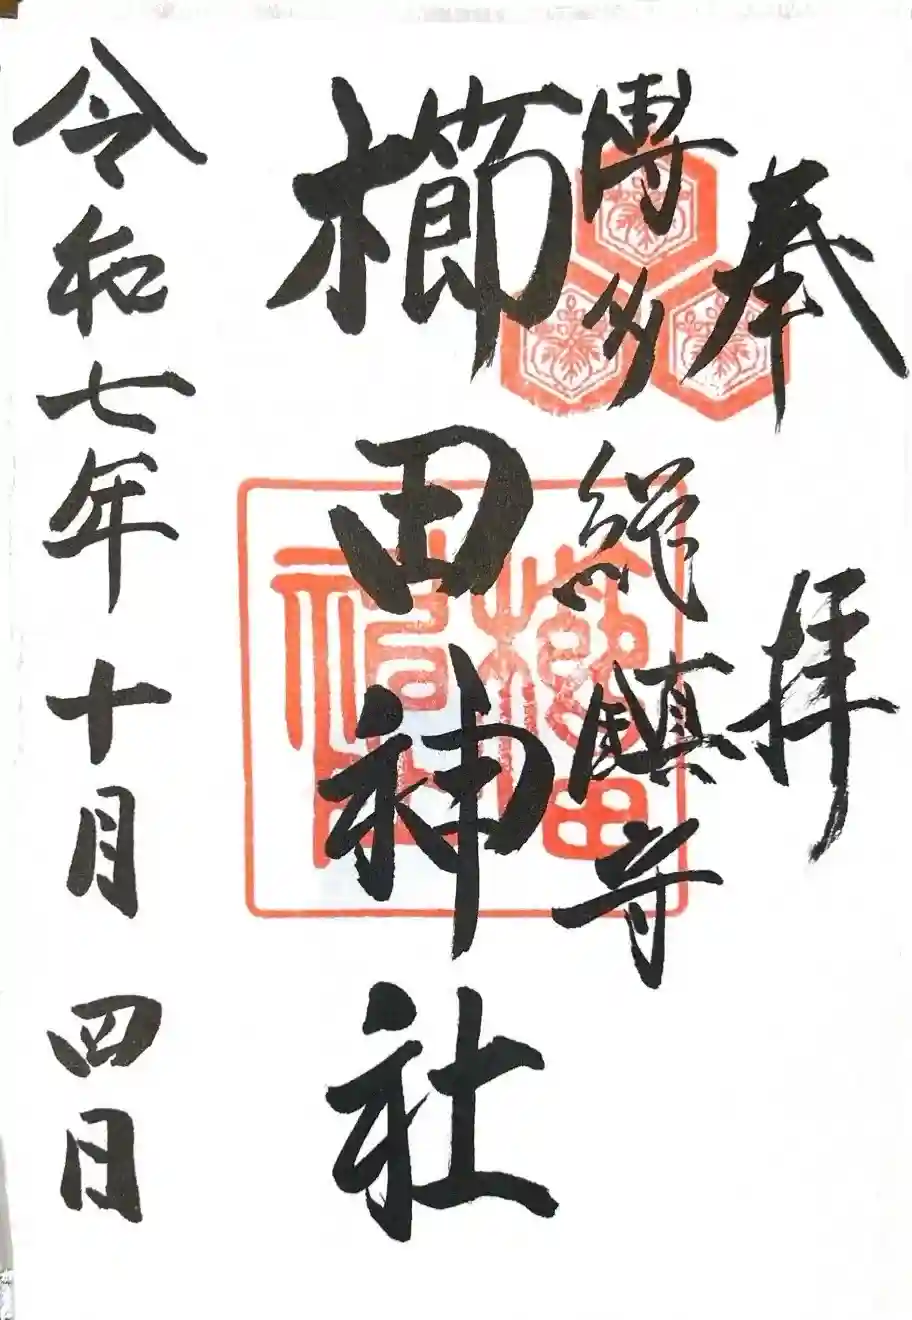 奉拝
博多総鎮守
櫛田神社
令和七年十月四日